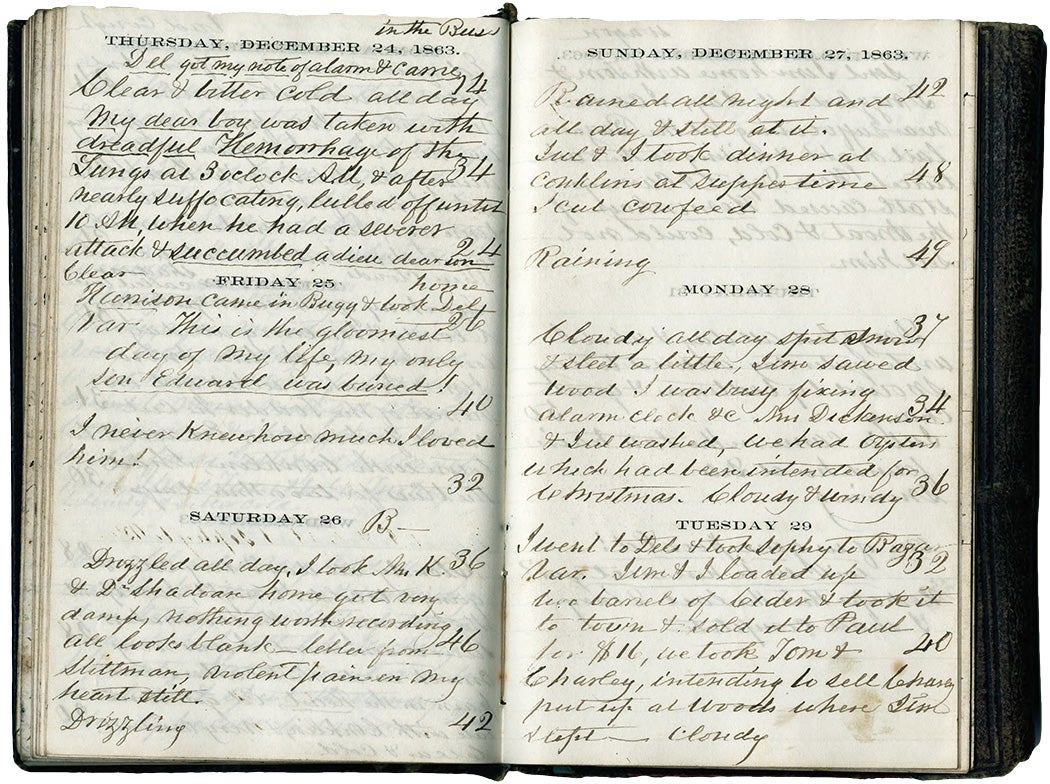 in the Buss
THURSDAY, DECEMBER 24, 1863.
Del got my note of alarm & came
Clear & bitter cold all day 14
My dear boy was taken with
dreadful Hemorrhage of the
Lungs at 3 oclock AM, & after 34
nearly suffocating, lulled off until
10 AM, when he had a severer
attack & succumbed adieu dear son 24
Clear home
FRIDAY 25
Harrison came in Bugy & took Del
Var. This is the gloomiest 26
day of my life, my only
son Edward was buried!
40
I never knew how much I loved
him!
32
SATURDAY 26 B—
Drizzled all day, I took Mr K. 36
& D. Shadoan home got very
damp, nothing worth recording,
all looks blank — letter from 46
Stittman, violent pain in my
heart still.
Drizzling 42
wagon
SUNDAY, DECEMBER 27, 1863.
Rained all night and 42
all day & still at it.
Jul & I took dinner at
Conklins at suppertime 48
I cut cowfeed
Raining 49.
MONDAY 28
Cloudy all day spit snow 37
& sleet a little, Jim sawed
wood I was busy fixing
alarm clock &c Mrs Dickenson 34
& Jul washed, we had Oysters
which had been intended for
Christmas. Cloudy & windy 36
TUESDAY 29
I went to Dels & took Sophy to
Var. Jim & I loaded up 32
two barrels of Cider & took it
to town & sold it to Paul
for $16, we took Tom & 40
Charley, intending to sell Charley
put up at Woods where Jim
slept — Cloudy